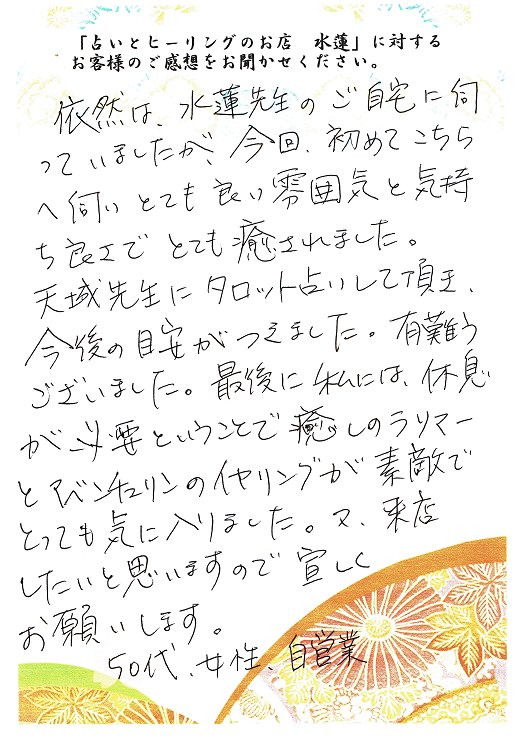 「占いとヒーリングのお店　水蓮」に対する
お客様のご感想をお聞かせください。
依然は、水蓮先生のご自宅に伺
っていましたが、今回、初めてこちら
へ伺いとても良い雰囲気と気持
ち良さでとても癒されました。
天域先生にタロット占いして頂き、
今後の目安がつえました。有難う
ございました。最後に私には、休息
が必要ということで癒しのラリマー
とアベンチュリンのイヤリングが素敵で
とっても気に入りました。又、来店
したいと思いますので宜しく
お願いします。
50代、女性、自営業